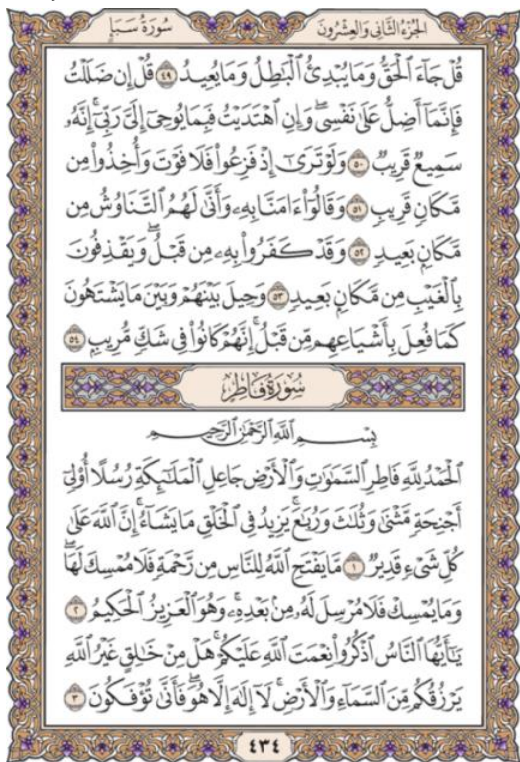 الجزء الثاني والعشرون
سورة سبإ
قُلْ جَآءَ ٱلْحَقُّ وَمَا يُبْدِئُ ٱلْبَٰطِلُ وَمَا يُعِيدُ ٤٩ قُلْ إِن ضَلَلْتُ
فَإِنَّمَآ أَضِلُّ عَلَىٰ نَفْسِى ۖ وَإِنِ ٱهْتَدَيْتُ فَبِمَا يُوحِىٓ إِلَىَّ رَبِّىٓ ۚ إِنَّهُۥ
سَمِيعٌ قَرِيبٌ ٥٠ وَلَوْ تَرَىٰٓ إِذْ فَزِعُوا۟ فَلَا فَوْتَ وَأُخِذُوا۟ مِن
مَّكَانٍ قَرِيبٍ ٥١ وَقَالُوٓا۟ ءَامَنَّا بِهِۦ وَأَنَّىٰ لَهُمُ ٱلتَّنَاوُشُ مِن
مَّكَانٍۭ بَعِيدٍ ٥٢ وَقَدْ كَفَرُوا۟ بِهِۦ مِن قَبْلُ ۖ وَيَقْذِفُونَ
بِٱلْغَيْبِ مِن مَّكَانٍۭ بَعِيدٍ ٥٣ وَحِيلَ بَيْنَهُمْ وَبَيْنَ مَا يَشْتَهُونَ
كَمَا فُعِلَ بِأَشْيَاعِهِم مِّن قَبْلُ ۚ إِنَّهُمْ كَانُوا۟ فِى شَكٍّ مُّرِيبٍۭ ٥٤
سورة فاطر
بِسْمِ ٱللَّهِ ٱلرَّحْمَٰنِ ٱلرَّحِيمِ
ٱلْحَمْدُ لِلَّهِ فَاطِرِ ٱلسَّمَٰوَٰتِ وَٱلْأَرْضِ جَاعِلِ ٱلْمَلَٰٓئِكَةِ رُسُلًا أُو۟لِىٓ
أَجْنِحَةٍ مَّثْنَىٰ وَثُلَٰثَ وَرُبَٰعَ ۚ يَزِيدُ فِى ٱلْخَلْقِ مَا يَشَآءُ ۚ إِنَّ ٱللَّهَ عَلَىٰ
كُلِّ شَىْءٍ قَدِيرٌ ١ مَّا يَفْتَحِ ٱللَّهُ لِلنَّاسِ مِن رَّحْمَةٍ فَلَا مُمْسِكَ لَهَا ۖ
وَمَا يُمْسِكْ فَلَا مُرْسِلَ لَهُۥ مِنۢ بَعْدِهِۦ ۚ وَهُوَ ٱلْعَزِيزُ ٱلْحَكِيمُ ٢
يَٰٓأَيُّهَا ٱلنَّاسُ ٱذْكُرُوا۟ نِعْمَتَ ٱللَّهِ عَلَيْكُمْ ۚ هَلْ مِنْ خَٰلِقٍ غَيْرُ ٱللَّهِ
يَرْزُقُكُم مِّنَ ٱلسَّمَآءِ وَٱلْأَرْضِ ۚ لَآ إِلَٰهَ إِلَّا هُوَ ۖ فَأَنَّىٰ تُؤْفَكُونَ ٣
٤٣٤